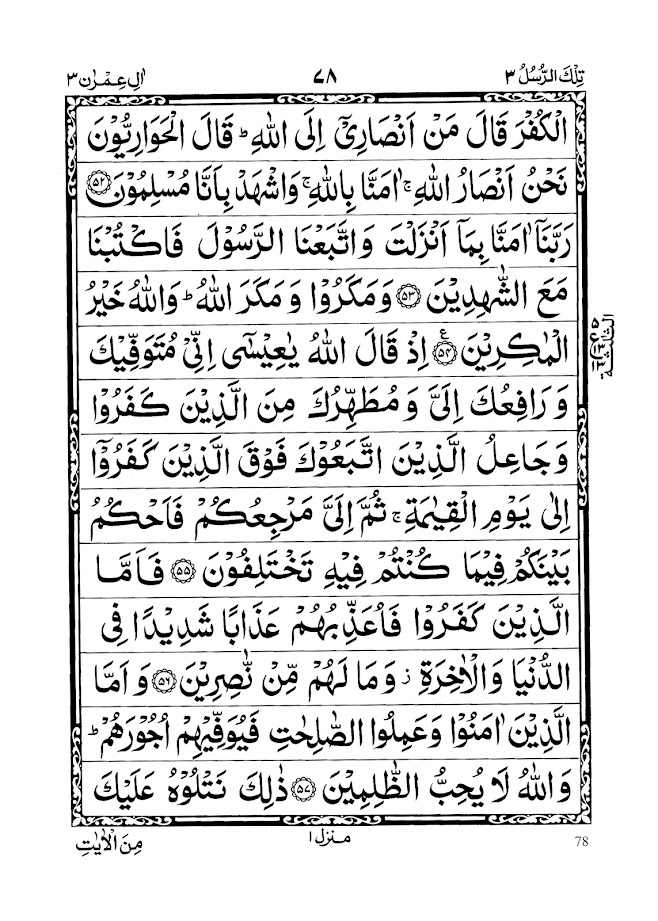 تِلْكَ الرُّسُلُ ٣ ٧٨ اٰلِ عِمْرٰن ٣
الْكُفْرَ قَالَ مَنْ اَنْصَارِيْۤ اِلَى اللّٰهِ ؕ قَالَ الْحَوَارِيُّوْنَ
نَحْنُ اَنْصَارُ اللّٰهِ ۚ اٰمَنَّا بِاللّٰهِ ۚ وَاشْهَدْ بِاَنَّا مُسْلِمُوْنَ ﴿۵۲﴾
رَبَّنَاۤ اٰمَنَّا بِمَاۤ اَنْزَلْتَ وَاتَّبَعْنَا الرَّسُوْلَ فَاكْتُبْنَا
مَعَ الشّٰهِدِيْنَ ﴿۵۳﴾ وَمَكَرُوْا وَ مَكَرَ اللّٰهُ ؕ وَاللّٰهُ خَيْرُ
الْمٰكِرِيْنَ ﴿۵۴﴾ ع اِذْ قَالَ اللّٰهُ يٰعِيْسٰۤى اِنِّيْ مُتَوَفِّيْكَ
وَ رَافِعُكَ اِلَيَّ وَ مُطَهِّرُكَ مِنَ الَّذِيْنَ كَفَرُوْا
وَجَاعِلُ الَّذِيْنَ اتَّبَعُوْكَ فَوْقَ الَّذِيْنَ كَفَرُوْۤا
اِلٰى يَوْمِ الْقِيٰمَةِ ۚ ثُمَّ اِلَيَّ مَرْجِعُكُمْ فَاَحْكُمُ
بَيْنَكُمْ فِيْمَا كُنْتُمْ فِيْهِ تَخْتَلِفُوْنَ ﴿۵۵﴾ فَاَمَّا
الَّذِيْنَ كَفَرُوْا فَاُعَذِّبُهُمْ عَذَابًا شَدِيْدًا فِي
الدُّنْيَا وَالْاٰخِرَةِ ۫ وَمَا لَهُمْ مِّنْ نّٰصِرِيْنَ ﴿۵۶﴾ وَ اَمَّا
الَّذِيْنَ اٰمَنُوْا وَعَمِلُوا الصّٰلِحٰتِ فَيُوَفِّيْهِمْ اُجُوْرَهُمْ ؕ
وَاللّٰهُ لَا يُحِبُّ الظّٰلِمِيْنَ ﴿۵۷﴾ ذٰلِكَ نَتْلُوْهُ عَلَيْكَ
78 منزل ١ مِنَ الْاٰيٰتِ